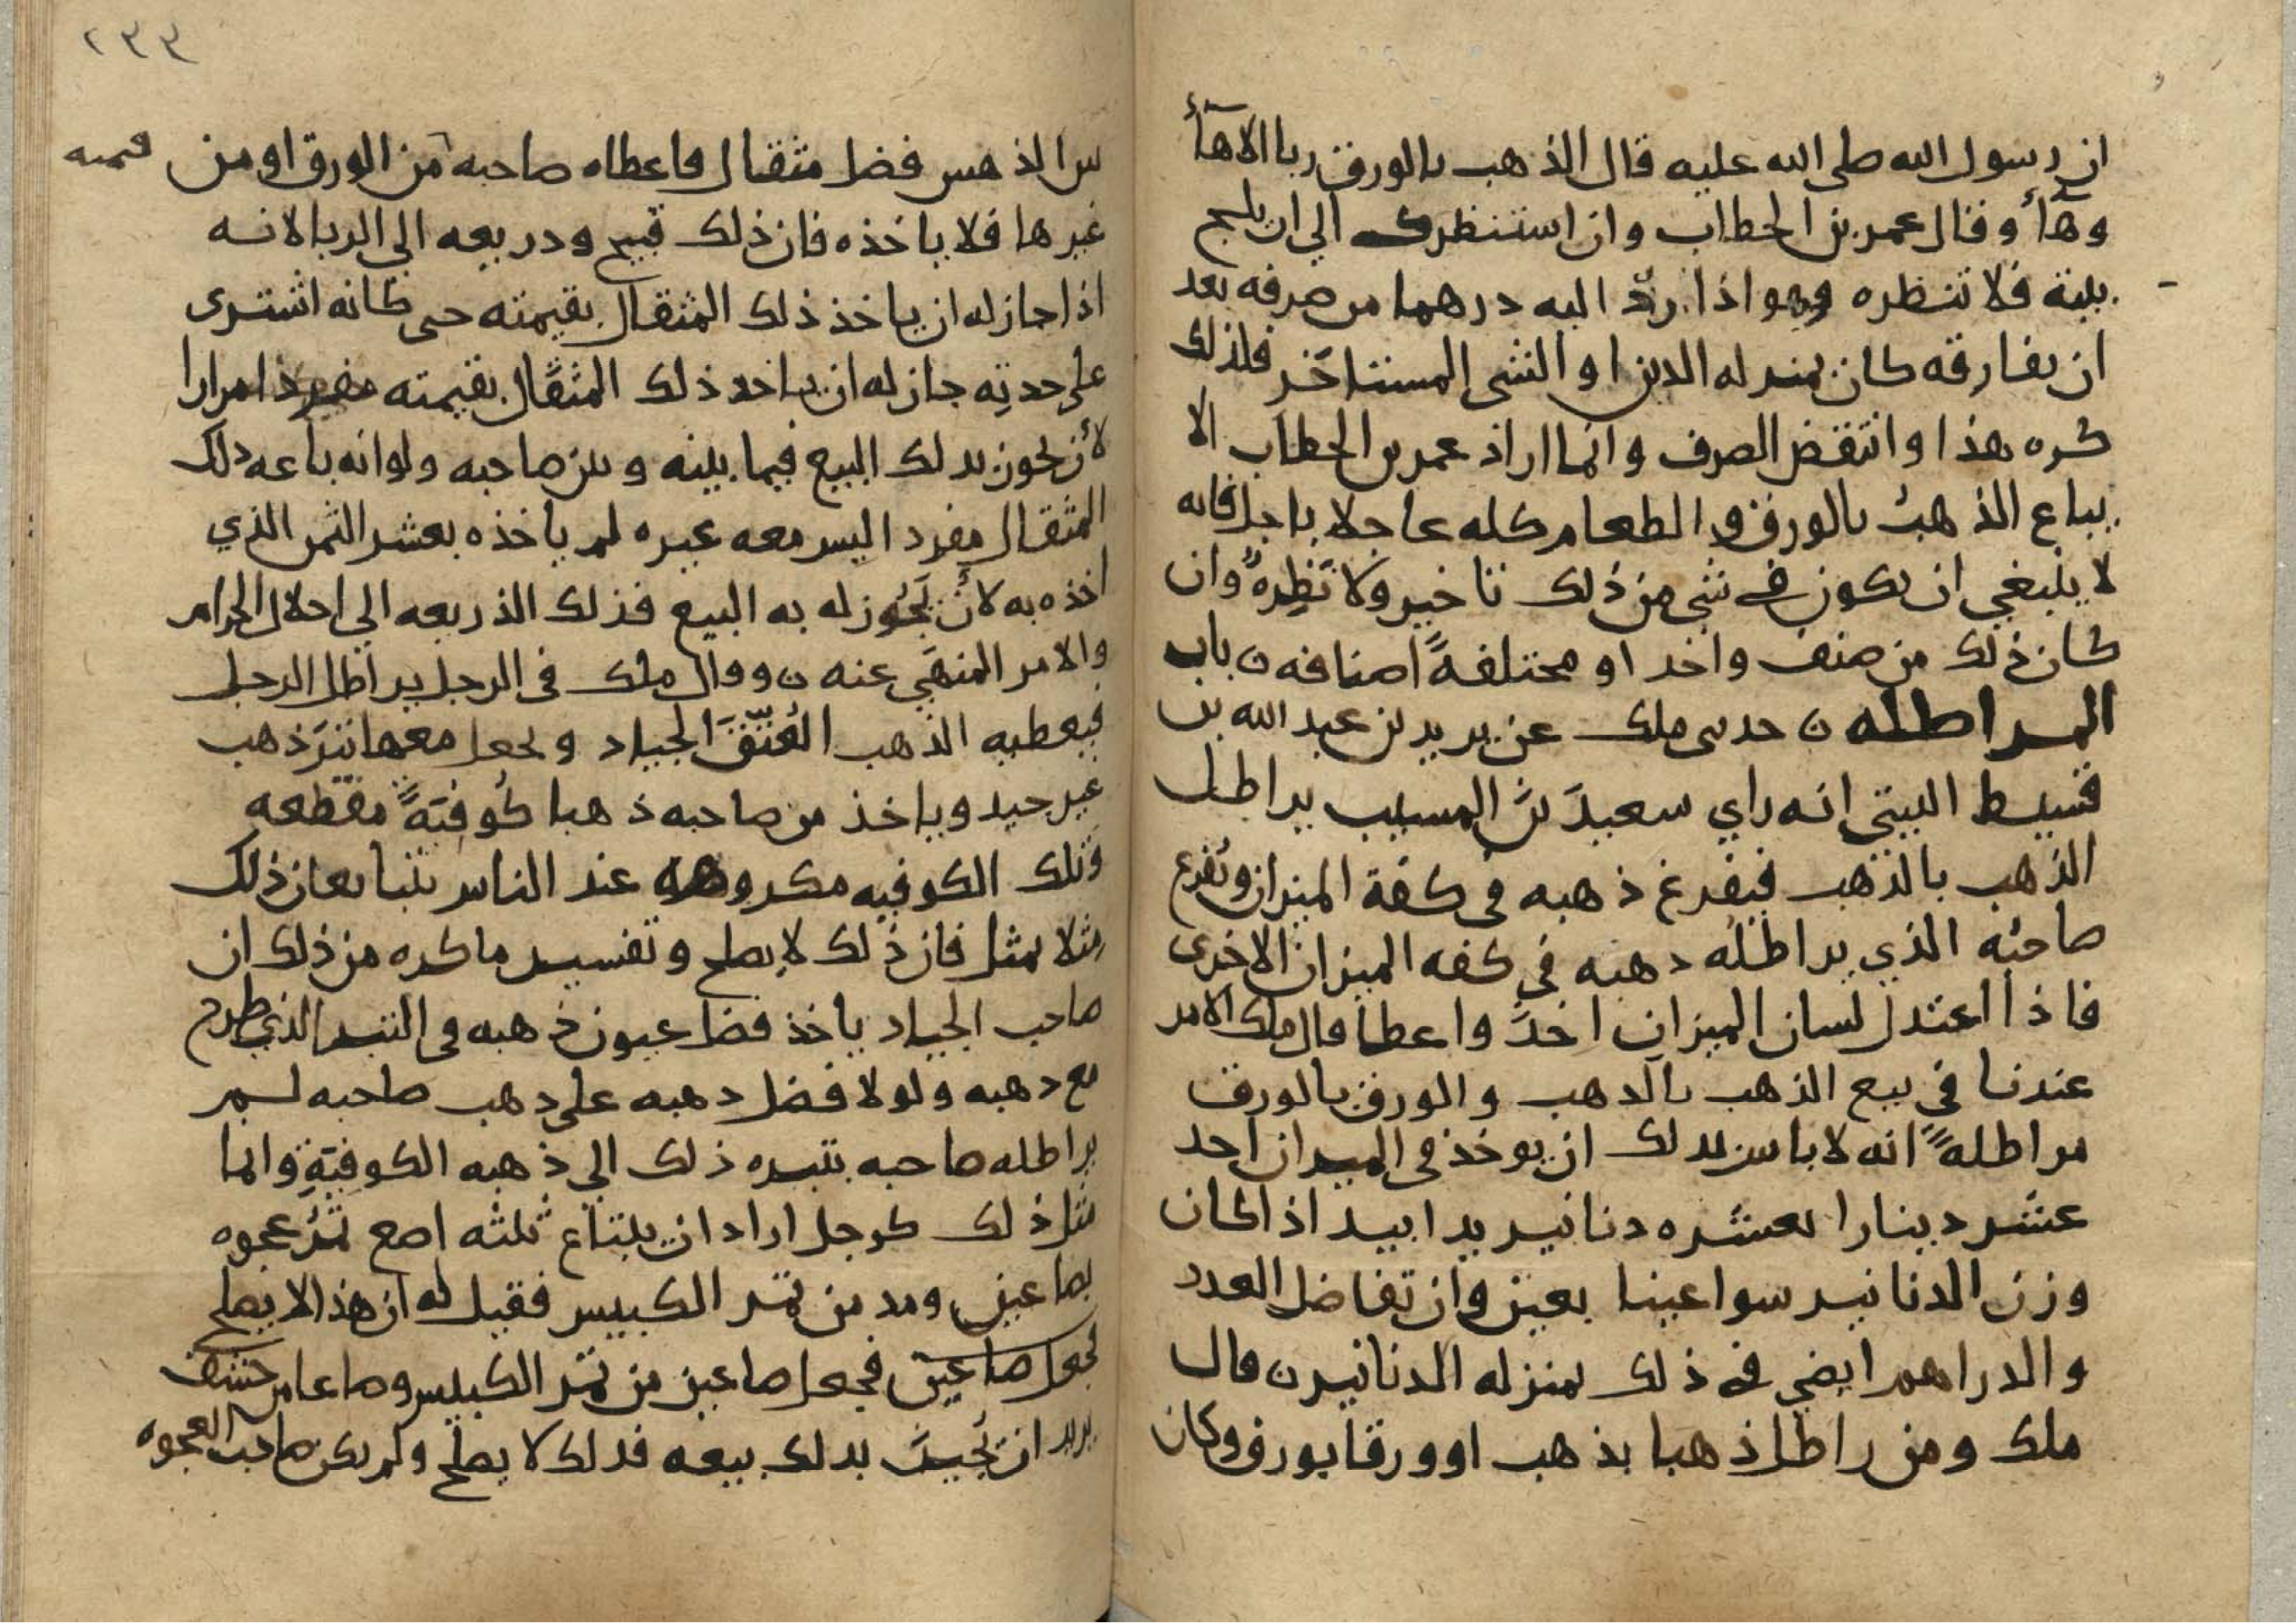 ان رسول الله صلى الله عليه قال الذهب بالورق ربا الا هآء
وهآء وقال عمر بن الخطاب وان استنظرك الي ان يلج
بيته فلا تنظره وهو اذا ردّ اليه درهما من صرفه بعد
ان يفارقه كان بمنزله الدين او الشي المستاخر فلذلك
كره هذا وانتقض الصرف وانما اراد عمر بن الخطاب الا
يباع الذهب بالورق والطعام كله عاجلا باجل فانه
لا ينبغي ان يكون في شي من ذلك تاخير ولا نظرة وان
كان ذلك من صنف واحد او مختلفةً اصنافه ن باب
المراطله ن حدثني ملك عن يزيد بن عبد الله بن
قسيط الليثي انه راي سعيدَ بن المسيب يراطل
الذهب بالذهب فيفرغ ذهبه في كفة الميزان ويُفرغ
صاحبُه الذي يراطلُه ذهبه في كفه الميزان الاخرى
فاذا اعتدل لسان الميزان اخذ واعطا قال ملك الامر
عندنا في بيع الذهب بالذهب والورق بالورق
مراطلةً انه لا باس بذلك ان يوخذ في الميزان احد
عشر دينارا بعشره دنانير يدا بيد اذا كان
وزن الدنانير سوا عينا بعين وان تفاضل العدد
والدراهم ايضي في ذلك بمنزله الدنانير ن قال
ملك ومن راطل ذهبا بذهب او ورقا بورق وكان
٢٣٣
بين الذهبين فضل مثقال فاعطاه صاحبه من الورق او من قيمته
غيرها فلا ياخذه فان ذلك قبيح وذريعه الي الربا لانه
اذا جاز له ان ياخذ ذلك المثقال بقيمته حتى كانه اشترى
على حدته جاز له ان ياخذ ذلك المثقال بقيمته مرارا
لأن يجوز بذلك البيع فيما بينه وبين صاحبه ولو انه باعه ذلك
المثقال مفردا ليس معه غيره لم ياخذه بعشر الثمن الذي
اخذه به لأن يَجُوز له به البيع فذلك الذريعه الي احلال الحرام
والامر المنهي عنه ن وقال ملك في الرجل يراطل الرجل
فيعطيه الذهب العُتّقَ الجياد ويجعل معها تبرَ ذهب
غير جيد وياخذ من صاحبه ذهبا كُوفيّةً مقطعه
وتلك الكوفيه مكروهه عند الناس يتبايعان ذلك
مثلا بمثل فان ذلك لا يصلح وتفسير ما كره من ذلك ان
صاحب الجياد ياخذ فضل عيون ذهبه في التبر الذي طرح
مع ذهبه ولولا فضل ذهبه على ذهب صاحبه لم
يراطله صاحبه بتبره ذلك الي ذهبه الكوفيّةِ وانما
مثل ذلك كرجل اراد ان يبتاع ثلثه اصع تمر عجوه
بصاعين ومد من تمر الكبيس فقيل له ان هذا لا يصلح
فجعل صاعين فجعل صاعين من تمر الكبيس وصاعا من حشف
يريد ان يُجيزَ بذلك بيعه فذلك لا يصلح ولم يكن صاحب العجوه